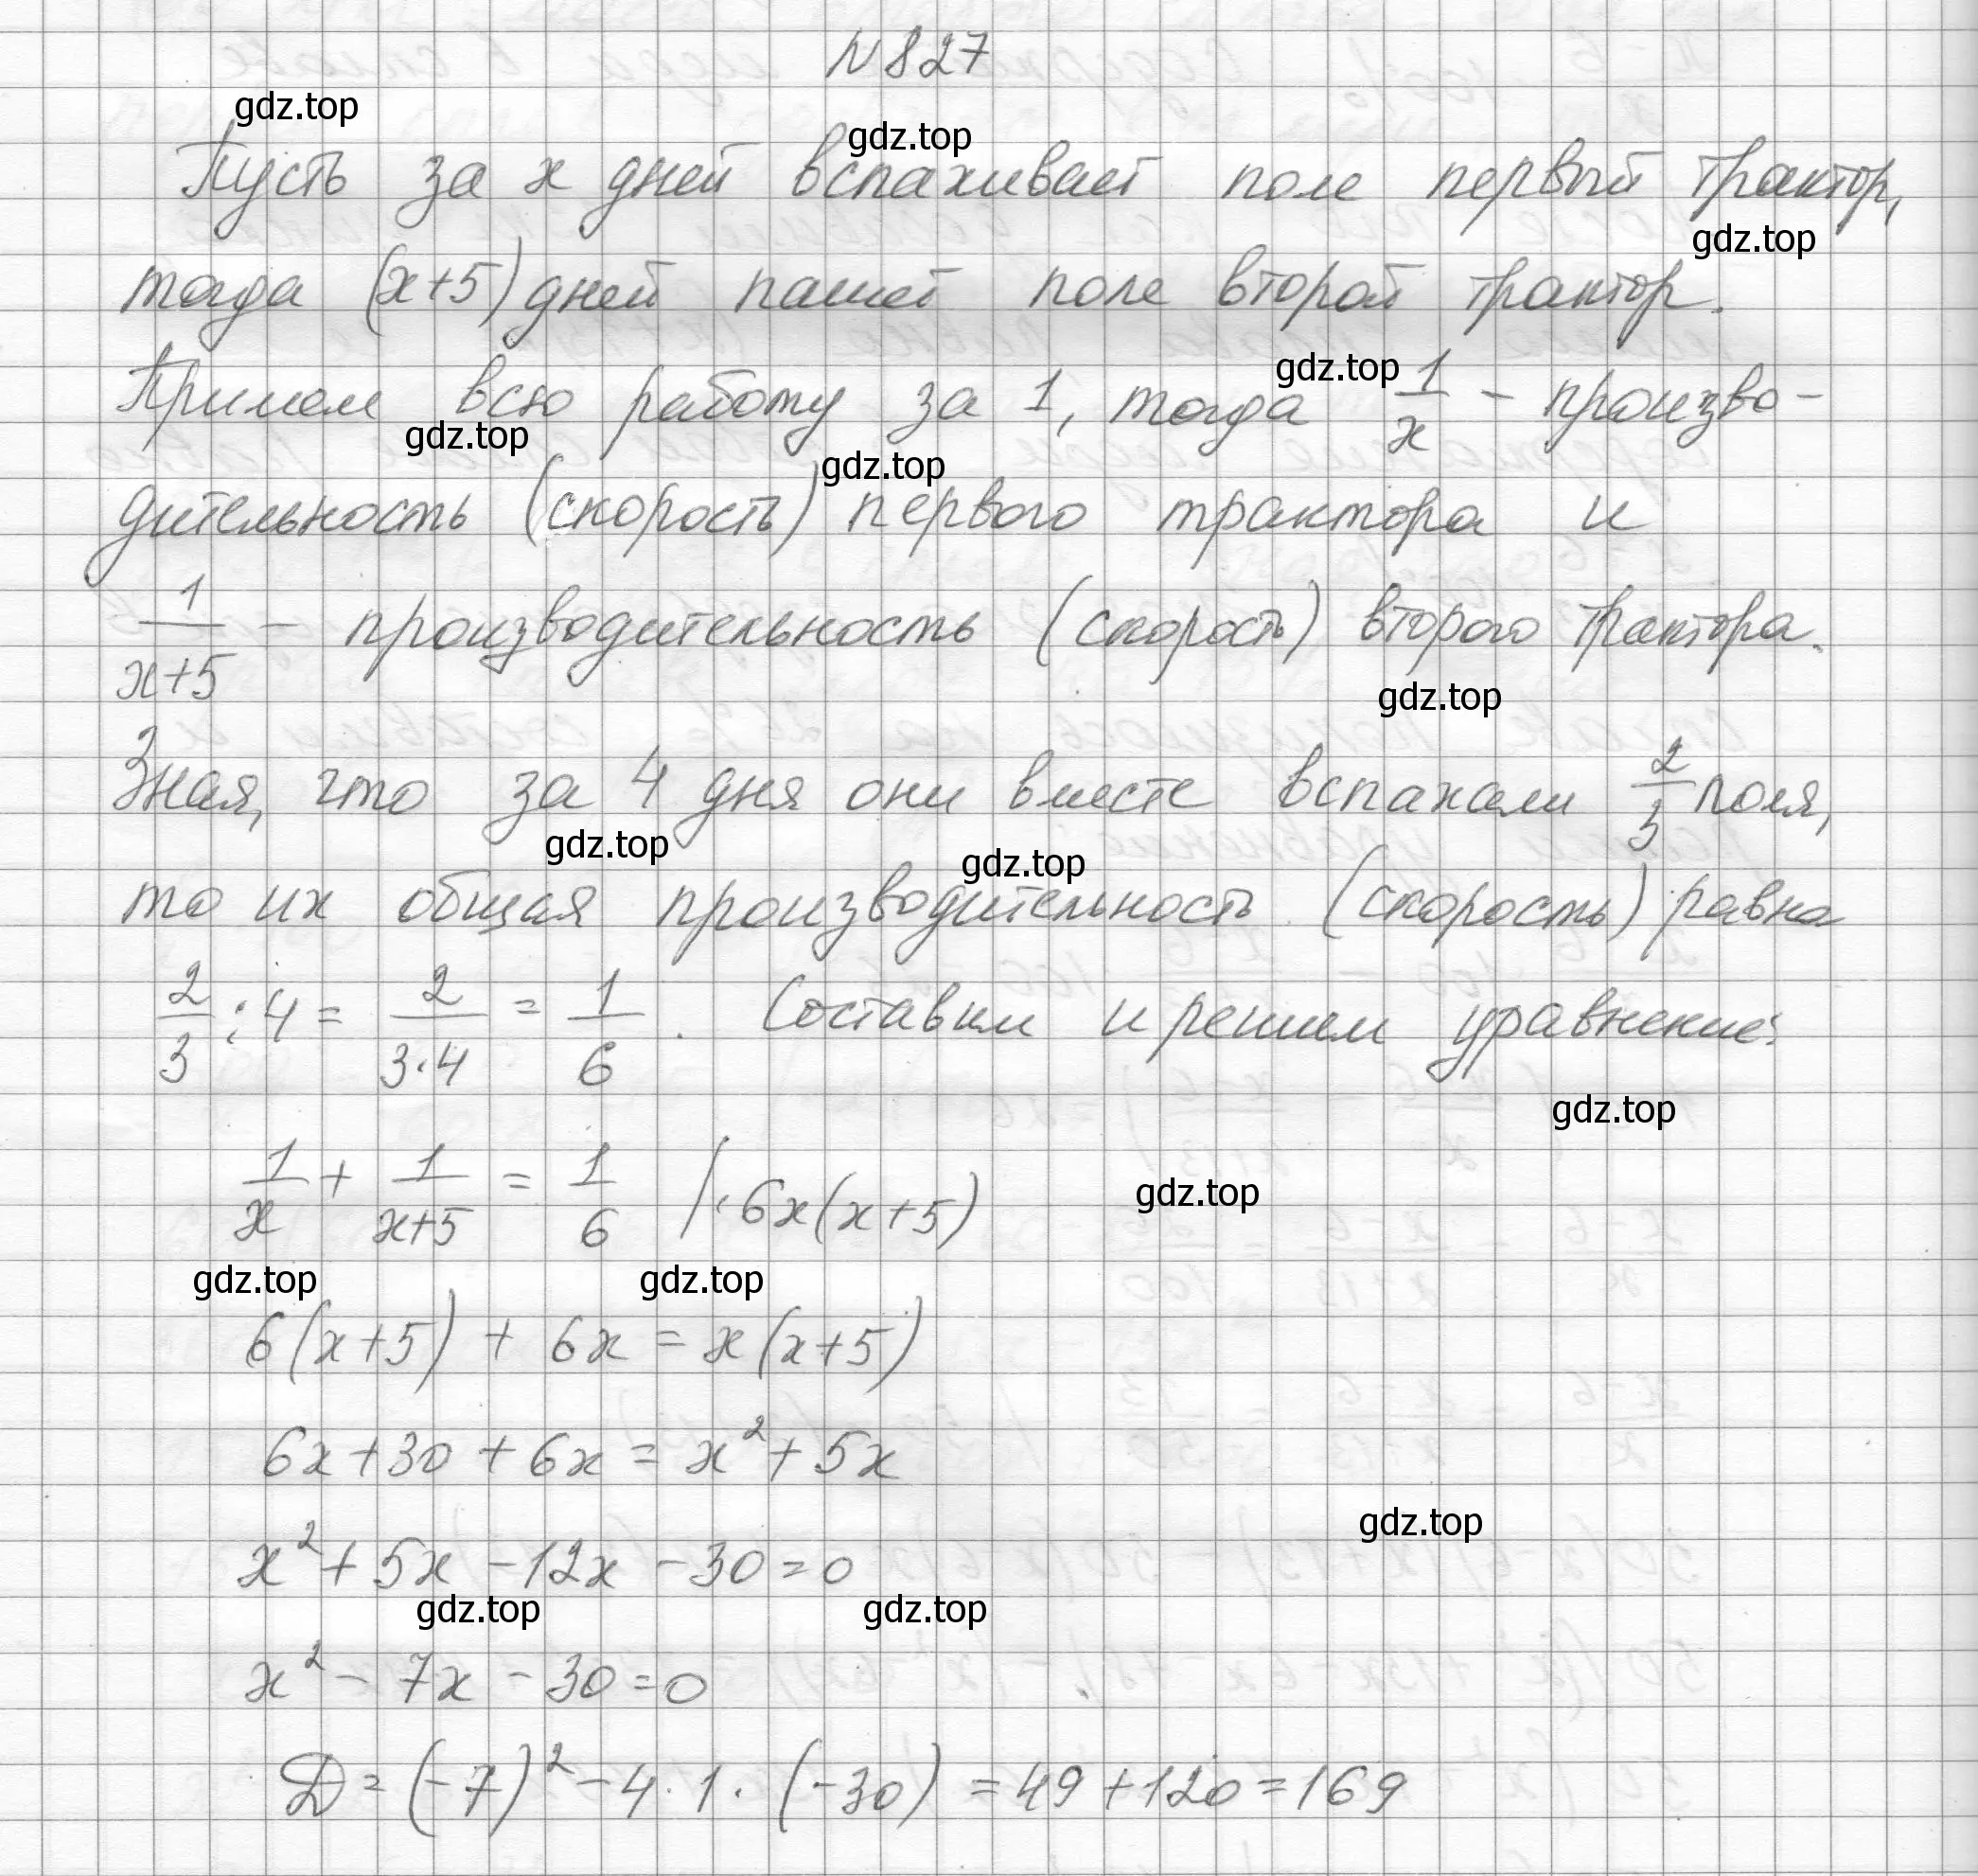 N 827
gdz.top
gdz.top
Пусть за x дней вспахивает поле первый трактор,
gdz.top
тогда (x+5) дней пашет поле второй трактор.
gdz.top
Примем всю работу за 1, тогда 1/x – произво-
gdz.top
gdz.top
дительность (скорость) первого трактора и
1/(x+5) – производительность (скорость) второго трактора.
gdz.top
Зная, что за 4 дня они вместе вспахали 2/3 поля,
gdz.top
gdz.top
то их общая производительность (скорость) равна
2/3 : 4 = 2/(3·4) = 1/6. Составим и решим уравнение:
gdz.top
1/x + 1/(x+5) = 1/6 /·6x(x+5)
gdz.top
gdz.top
gdz.top
6(x+5) + 6x = x(x+5)
6x+30+6x = x²+5x
gdz.top
x²+5x-12x-30=0
gdz.top
gdz.top
x²-7x-30=0
D=(-7)²-4·1·(-30)=49+120=169